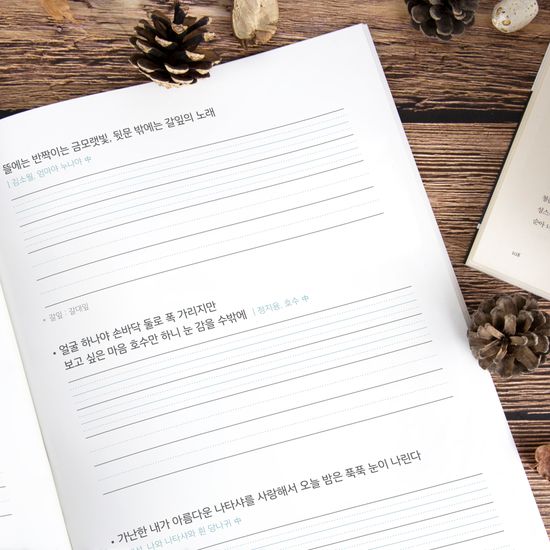 뜰에는 반짝이는 금모랫빛, 뒷문 밖에는 갈잎의 노래
| 김소월, 엄마야 누나야 中
* 갈잎 : 갈대잎
• 얼굴 하나야 손바닥 둘로 폭 가리지만
보고 싶은 마음 호수만 하니 눈 감을 수밖에 | 정지용, 호수 中
• 가난한 내가 아름다운 나타샤를 사랑해서 오늘 밤은 푹푹 눈이 나린다
나와 나타샤와 흰 당나귀 中